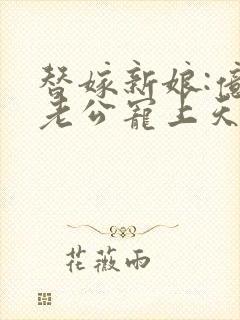 替嫁新娘:億
老公寵上天
花薇雨